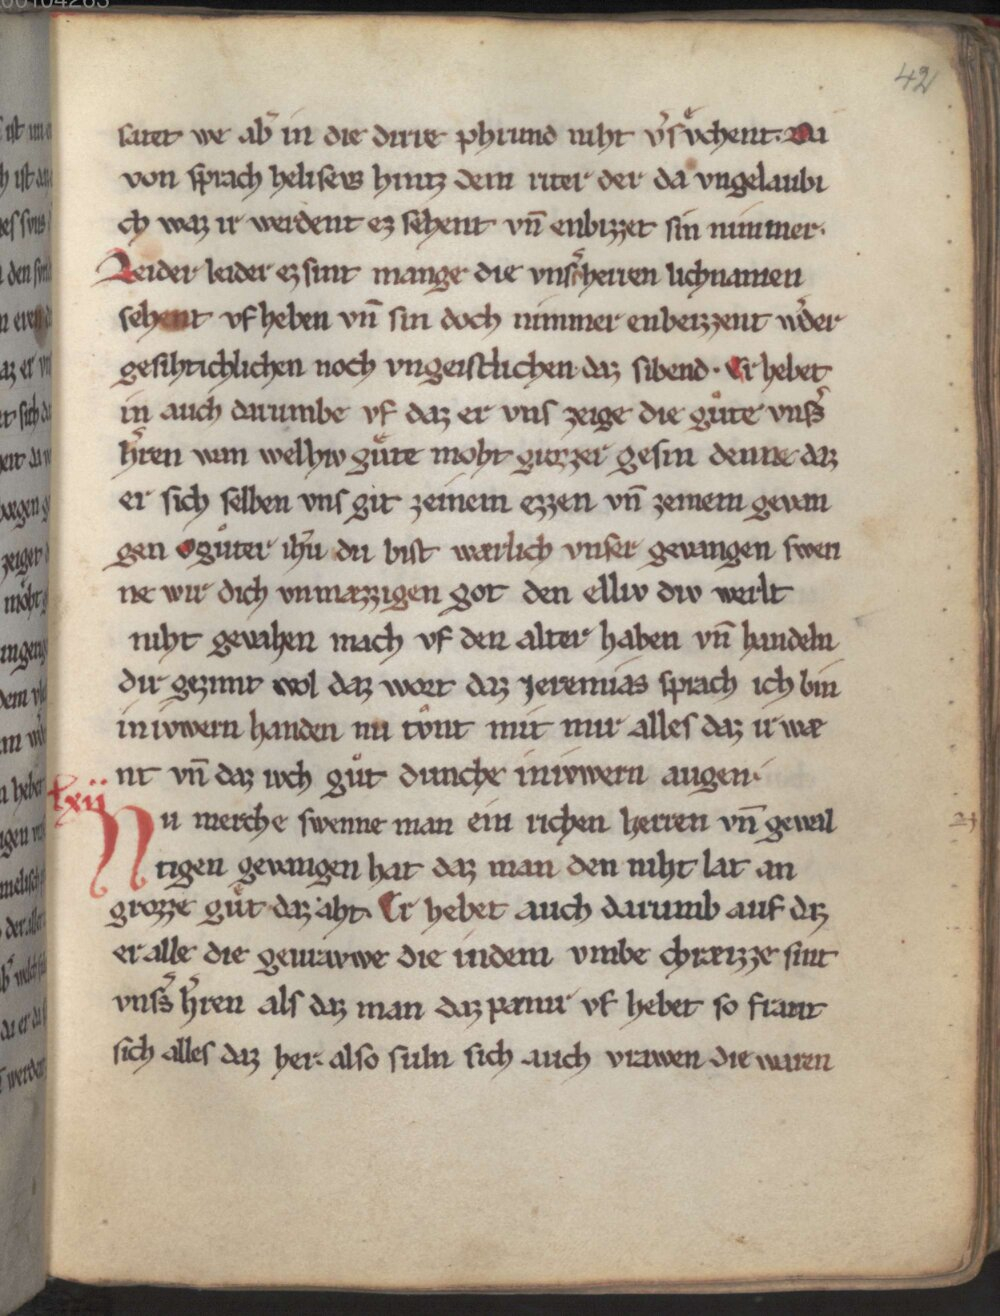 42
saiet we ab͛ in die dirre phrund niht v͛sůchent. Da
von sprach heliseus hintz dem riter der da vngelaubi
ch waz ir werdent ez sehent vn̄ enbizzet sin nimmer.
Leider leider ez sint mange die vns͛ herren lichnamen
sehent vf heben vn̄ sin doch nimmer enbeizzent wͥder
gesihtichlichen noch vngeistlichen daz sibend. Er hebet
in auch darumbe vf daz er vns zeige die gůte vns͛s
h͛ren wan welhiv gůte moht grozzer gesin denne daz
er sich selben vns git zeinem ezzen vn̄ zeinem gevan
gen o gůter ih̄u du bist wærlich vnser gevangen swen
ne wir dich vnmæzzigen got den elliv div werlt
niht gevahen mach vf den alter haben vn̄ handeln
dir gezimt wol daz wort daz Jeremias sprach ich bin
in ivwern handen nu tůnt mit mir alles daz ir wæ
nt vn̄ daz ivch gůt dunche in ivwern augen.
lxii
Nu merche swenne man ein richen herren vn̄ gewal
tigen gevangen hat daz man den niht lat an
grozze gůt daz aht. Er hebet auch darumb auf daz
er alle die gevravwe die in dem vmbe chræizze sint
vns͛s h͛ren als daz man daz panir vf hebet so fravt
sich alles daz her. also suln sich auch vrawen die waren